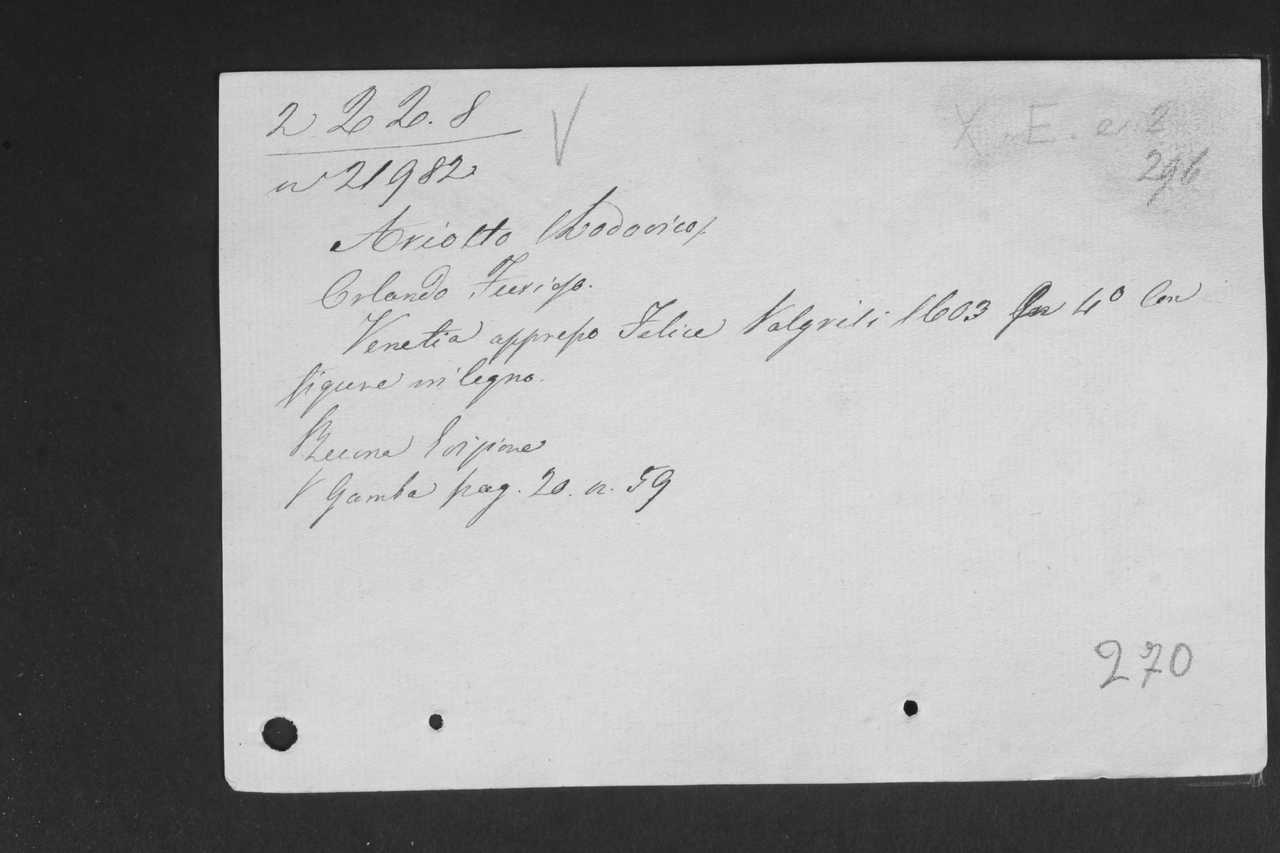 2 2 2. 8 V X. E. e. 2
n 21982 296
Ariosto (Lodovico)
Orlando Furioso.
Venetia appresso Felice Valgrisi 1603 In 4º Con
figure in legno.
Buona Edizione
V Gamba pag. 20. n. 59
270